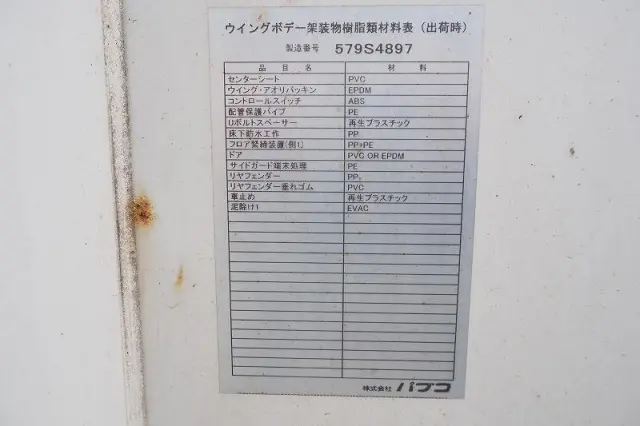 ウイングボデー架装物樹脂類材料表（出荷時）
製造番号 579S4897
品目名 材料
センターシート PVC
ウイング・アオリパッキン EPDM
コントロールスイッチ ABS
配管保護パイプ PE
Uボルトスペーサー 再生プラスチック
床下防水工作 PP
フロア緊締装置(側1) PP+PE
ドア PVC OR EPDM
サイドガード端末処理 PE
リヤフェンダー PP
リヤフェンダー垂れゴム PVC
車止め 再生プラスチック
泥除け1 EVAC
株式会社 パブコ